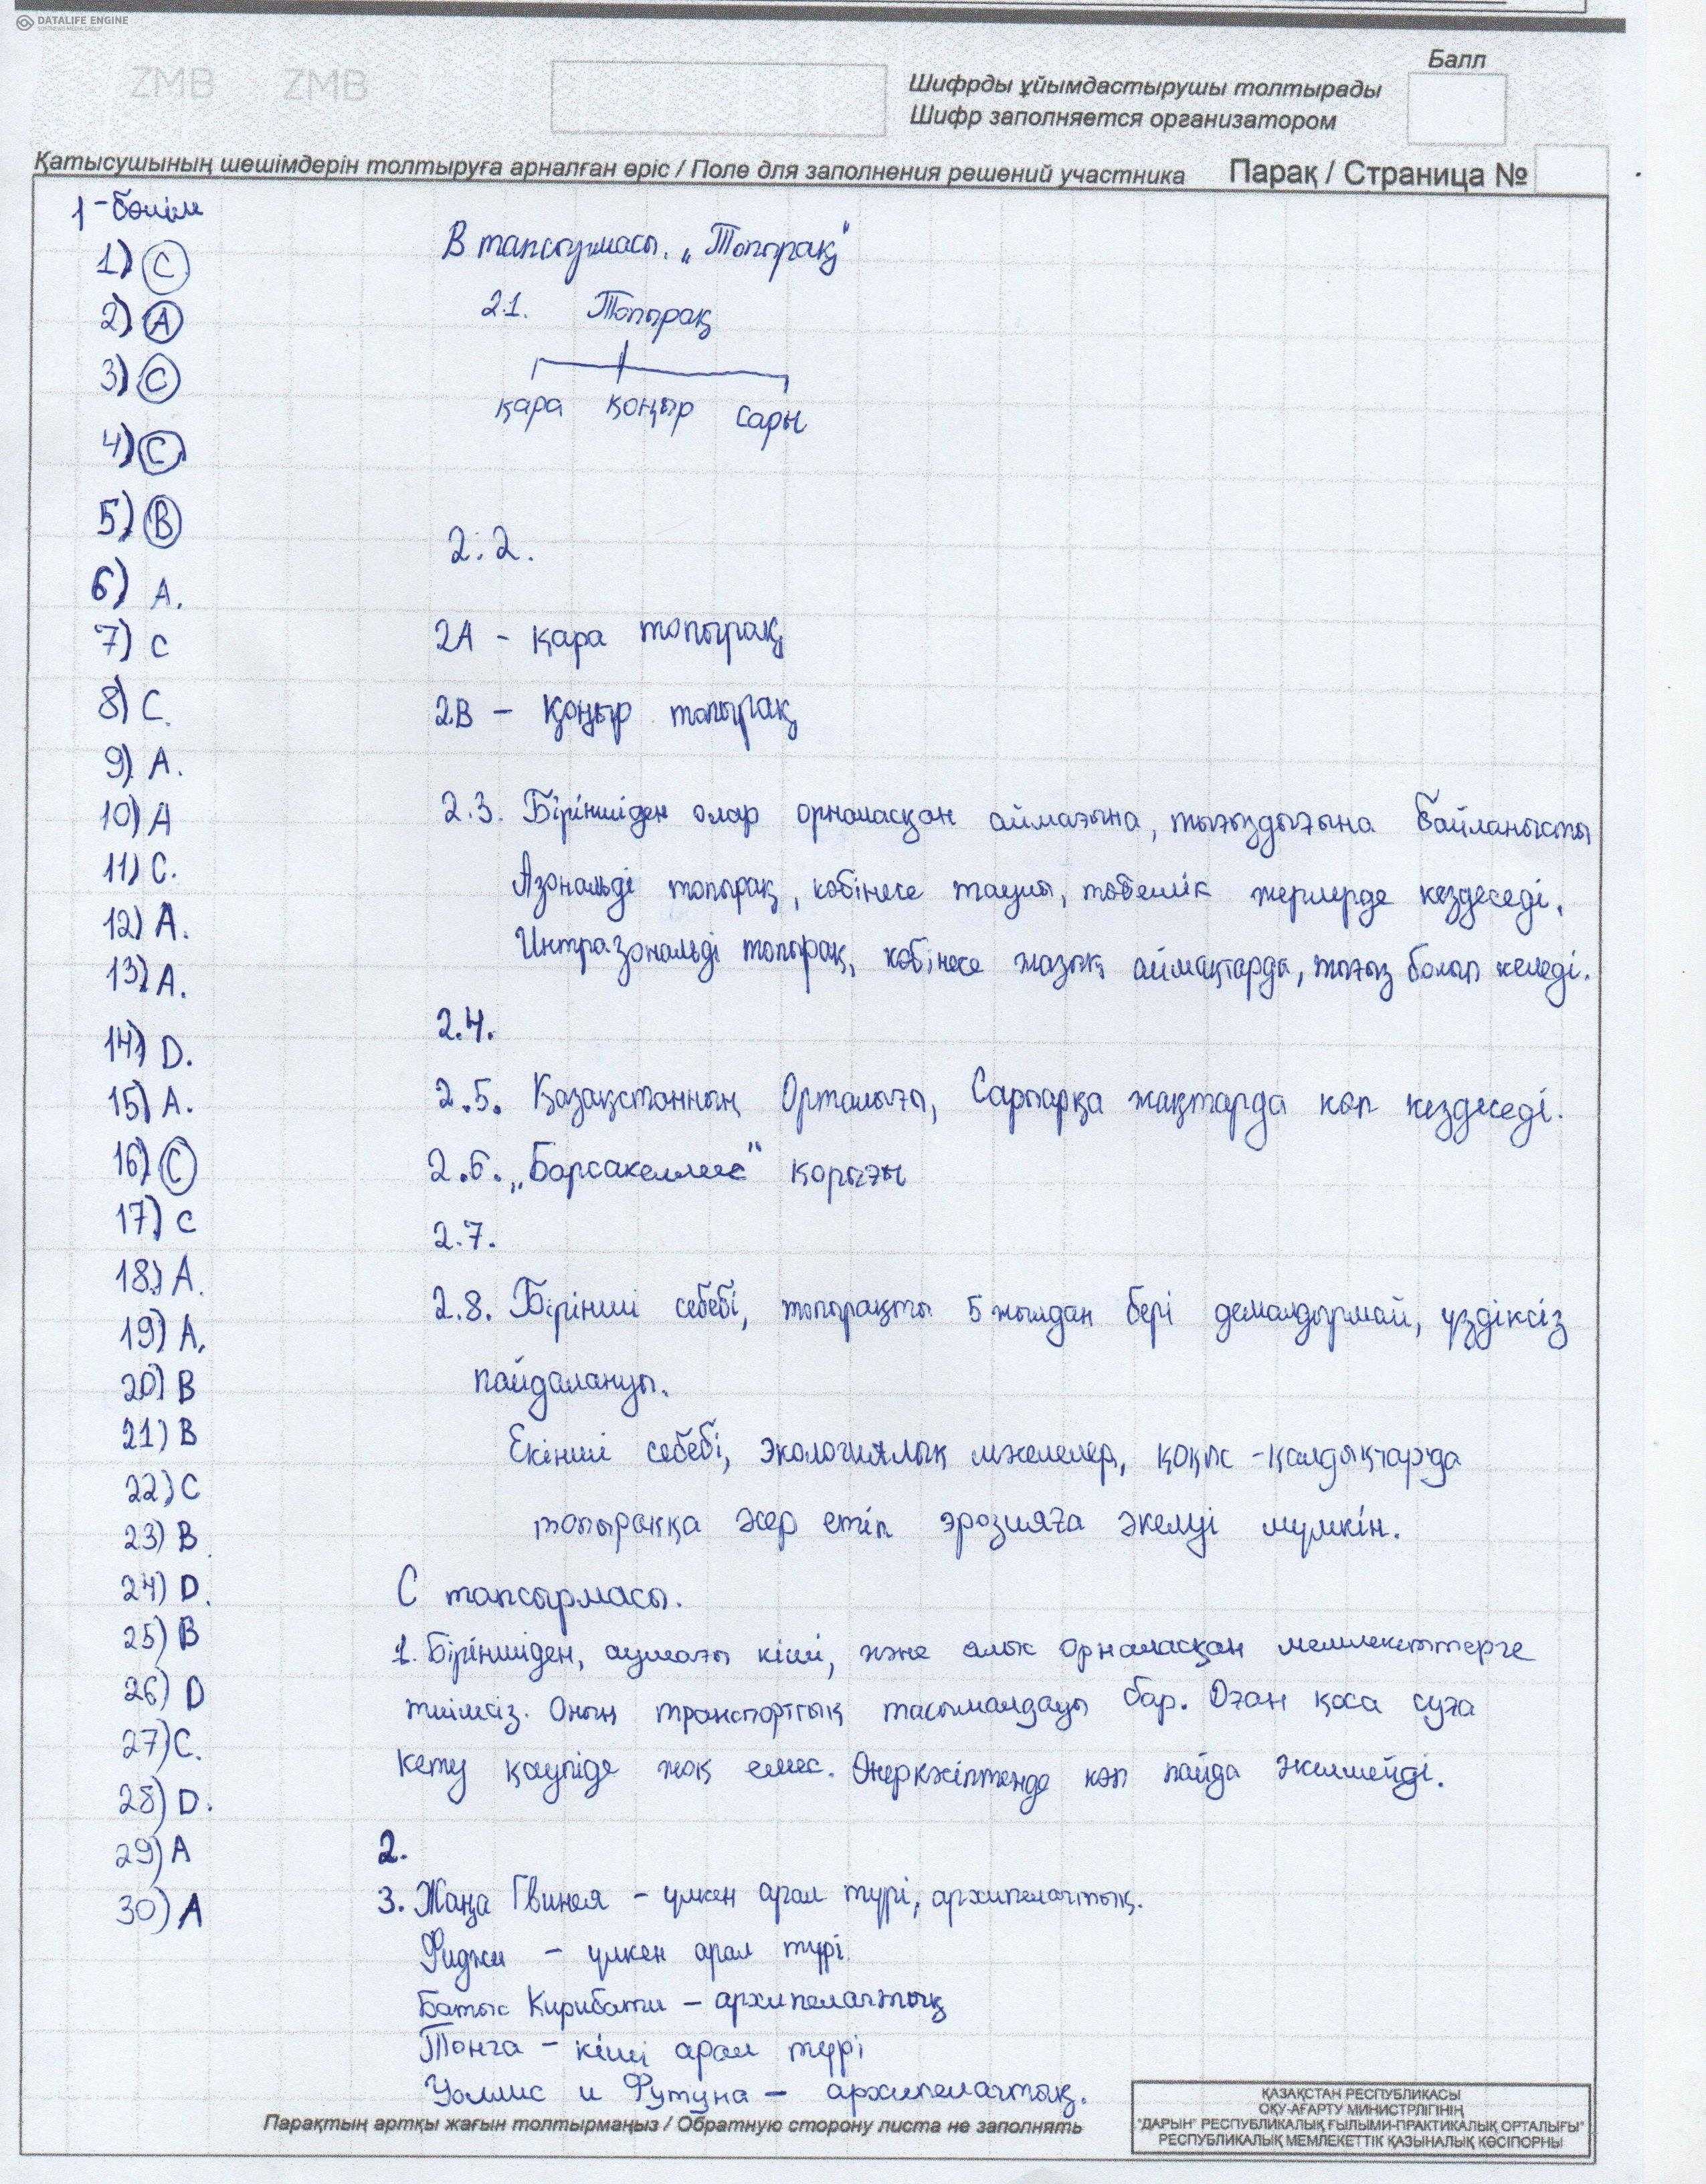 DATALIFE ENGINE
ZMB ZMB
Балл
Шифрды ұйымдастырушы толтырады
Шифр заполняется организатором
Қатысушының шешімдерін толтыруға арналған өріс / Поле для заполнения решений участника Парақ / Страница №
1-бөлім
1) C
2) A
3) C
4) C
5) B
6) A.
7) C
8) C.
9) A.
10) A
11) C.
12) A.
13) A.
14) D.
15) A.
16) C
17) C
18) A.
19) A.
20) B
21) B
22) C
23) B
24) D.
25) B
26) D
27) C.
28) D.
29) A
30) A
В тапсырмасы. „Топырақ"
2.1. Топырақ
қара қоңыр сары
2.2.
2A - қара топырақ
2B - қоңыр топырақ
2.3. Біріншіден олар орналасқан аймағына, тығыздығына байланысты
Азональді топырақ, көбінесе таулы, төбелік жерлерде кездеседі.
Интразональді топырақ, көбінесе жазық аймақтарда, тығыз болып келеді.
2.4.
2.5. Қазақстанның Орталығы, Сарыарқа жақтарда көп кездеседі.
2.6. „Барсакелмес" қорығы
2.7.
2.8. Бірінші себебі, топырақты 5 жылдан бері демалдырмай, үздіксіз
пайдалануы.
Екінші себебі, экологиялық мәселелер, қоқыс-қалдықтарда
топыраққа әсер етіп эрозияға әкелуі мүмкін.
С тапсырмасы.
1. Біріншіден, аумағы кіші, және алыс орналасқан мемлекеттерге
тиімсіз. Оның транспорттық тасымалдауы бар. Оған қоса суға
кету қаупіде жоқ емес. Өнеркәсіптенде көп пайда әкелмейді.
2.
3. Жаңа Гвинея - үлкен арал түрі, архипелагтық.
Фиджи - үлкен арал түрі
Батыс Кирибати - архипелагтық
Тонга - кіші арал түрі
Уоллис и Футуна - архипелагтық.
Парақтың артқы жағын толтырмаңыз / Обратную сторону листа не заполнять
ҚАЗАҚСТАН РЕСПУБЛИКАСЫ
ОҚУ-АҒАРТУ МИНИСТРЛІГІНІҢ
"ДАРЫН" РЕСПУБЛИКАЛЫҚ ҒЫЛЫМИ-ПРАКТИКАЛЫҚ ОРТАЛЫҒЫ"
РЕСПУБЛИКАЛЫҚ МЕМЛЕКЕТТІК ҚАЗЫНАЛЫҚ КӘСІПОРНЫ